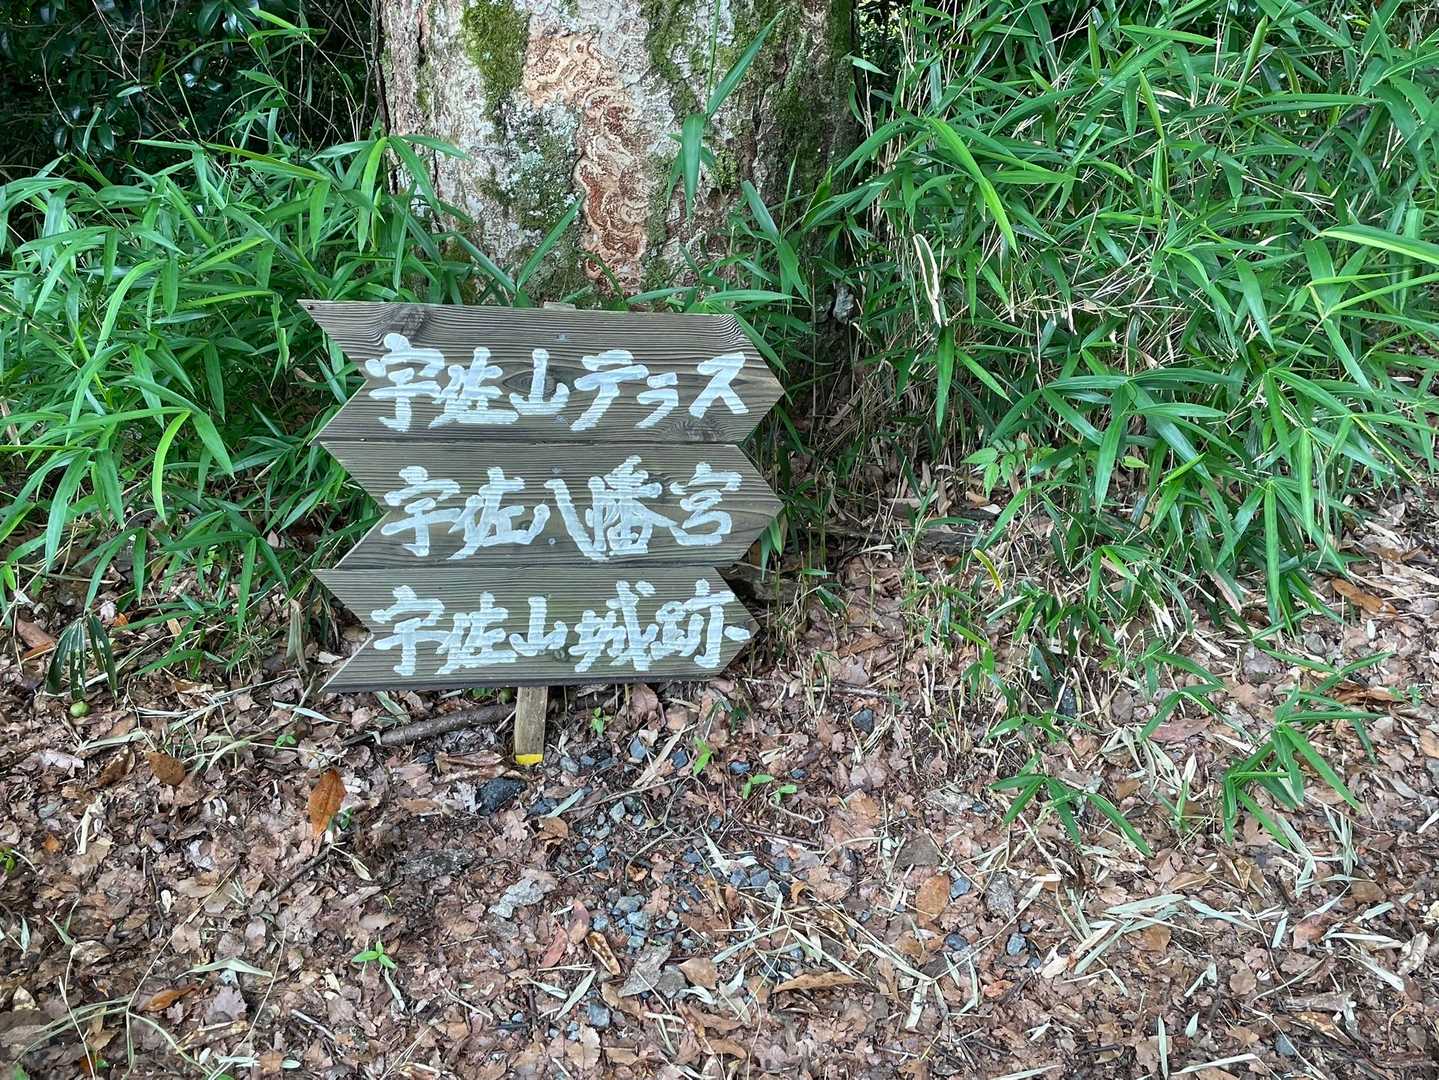 宇佐山テラス
宇佐八幡宮
宇佐山城跡